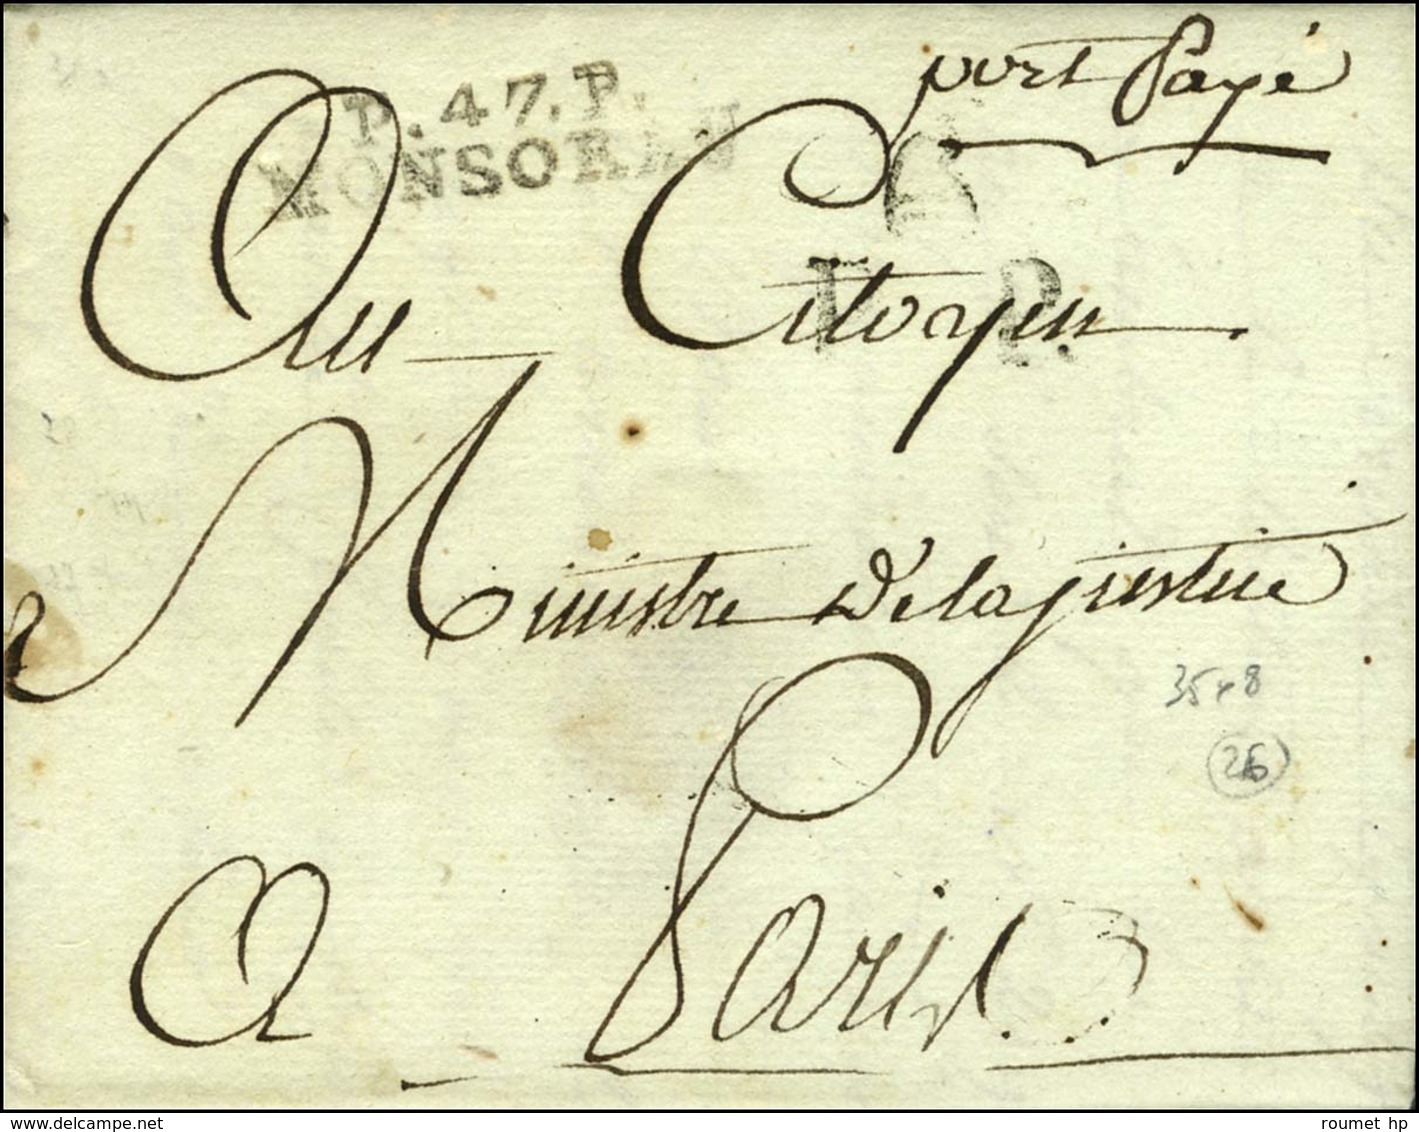 port Payé
P.47.P.
MONSOREAU
Au Citoyen
P. P.
Ministre de la justice
35 x 8
26
A Paris
www.delcampe.net
roumet hp